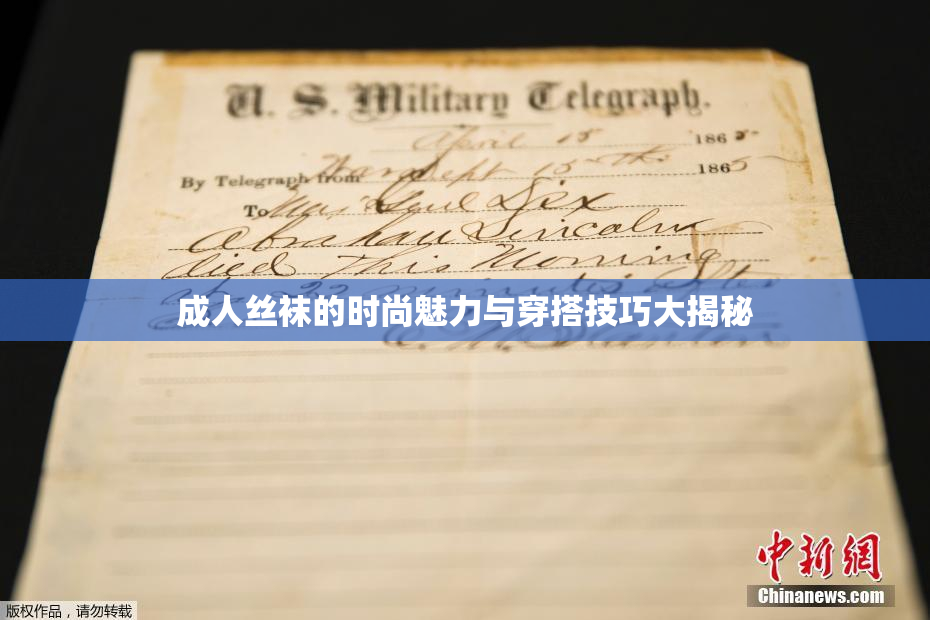 U. S. Military Telegraph.
April 15 1865
By Telegraph from War Dept 15th 1865
To Maj Genl Dix
Abraham Lincoln
died This Morning
at 22 minutes after
成人丝袜的时尚魅力与穿搭技巧大揭秘
E. M. Stanton
中新网
Chinanews.com
版权作品，请勿转载